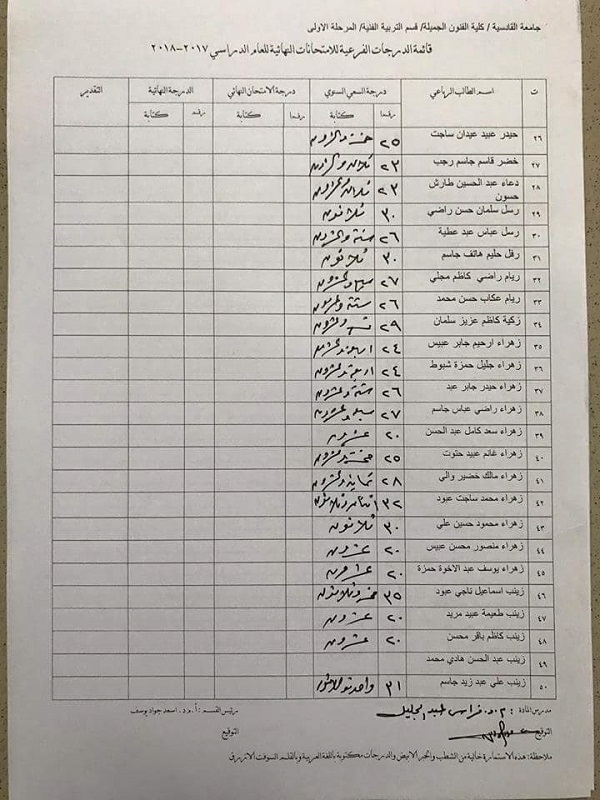 جامعة القادسية / كلية الفنون الجميلة/ قسم التربية الفنية/ المرحلة الاولى
قائمة الدرجات الفرعية للامتحانات النهائية للعام الدراسي ٢٠١٧-٢٠١٨
ت اسم الطالب الرباعي درجة السعي السنوي درجة الامتحان النهائي الدرجة النهائية التقدير
رقما كتابة رقما كتابة رقما كتابة
٢٦ حيدر عبيد عيدان ساجت ٢٥ خمسة وعشرون
٢٧ خضر قاسم جاسم رجب ٢٣ ثلاث وعشرون
٢٨ دعاء عبد الحسين طارش حسون ٢٣ ثلاث وعشرون
٢٩ رسل سلمان حسن راضي ٣٠ ثلاثون
٣٠ رسل عباس عبد عطية ٢٦ ستة وعشرون
٣١ رفل حليم هاتف جاسم ٣٠ ثلاثون
٣٢ ريام راضي كاظم مجلي ٢٧ سبع وعشرون
٣٣ ريام عكاب حسن محمد ٢٦ ستة وعشرون
٣٤ زكية كاظم عزيز سلمان ٢٩ تسع وعشرون
٣٥ زهراء ارحيم جابر عبيس ٢٤ اربعة وعشرون
٣٦ زهراء جليل حمزة شبوط ٢٤ اربعة وعشرون
٣٧ زهراء حيدر جابر عبد ٢٦ ستة وعشرون
٣٨ زهراء راضي عباس جاسم ٢٧ سبع وعشرون
٣٩ زهراء سعد كامل عبد الحسن ٢٠ عشرون
٤٠ زهراء غانم عبيد حتوت ٢٥ خمسة وعشرون
٤١ زهراء مالك خضير والي ٢٨ ثمانية وعشرون
٤٢ زهراء محمد ساجت عبود ٣٢ اثنان وثلاثون
٤٣ زهراء محمود حسين علي ٣٠ ثلاثون
٤٤ زهراء منصور محسن عبيس ٢٠ عشرون
٤٥ زهراء يوسف عبد الاخوة حمزة ٢٠ عشرون
٤٦ زينب اسماعيل ناجي عبود ٣٥ خمس وثلاثون
٤٧ زينب طعيمة عبيد مريد ٢٠ عشرون
٤٨ زينب كاظم باقر محسن ٢٠ عشرون
٤٩ زينب عبد الحسن هادي محمد
٥٠ زينب علي عبد زيد جاسم ٣١ واحد وثلاثون
مدرس المادة : م.د. فراس عبد الجليل رئيس القسم : أ.م.د. اسعد جواد يوسف
التوقيع التوقيع
ملاحظة: هذه الاستمارة خالية من الشطب والحبر الابيض والدرجات مكتوبة باللغة العربية وبالقلم السوفت الازرق